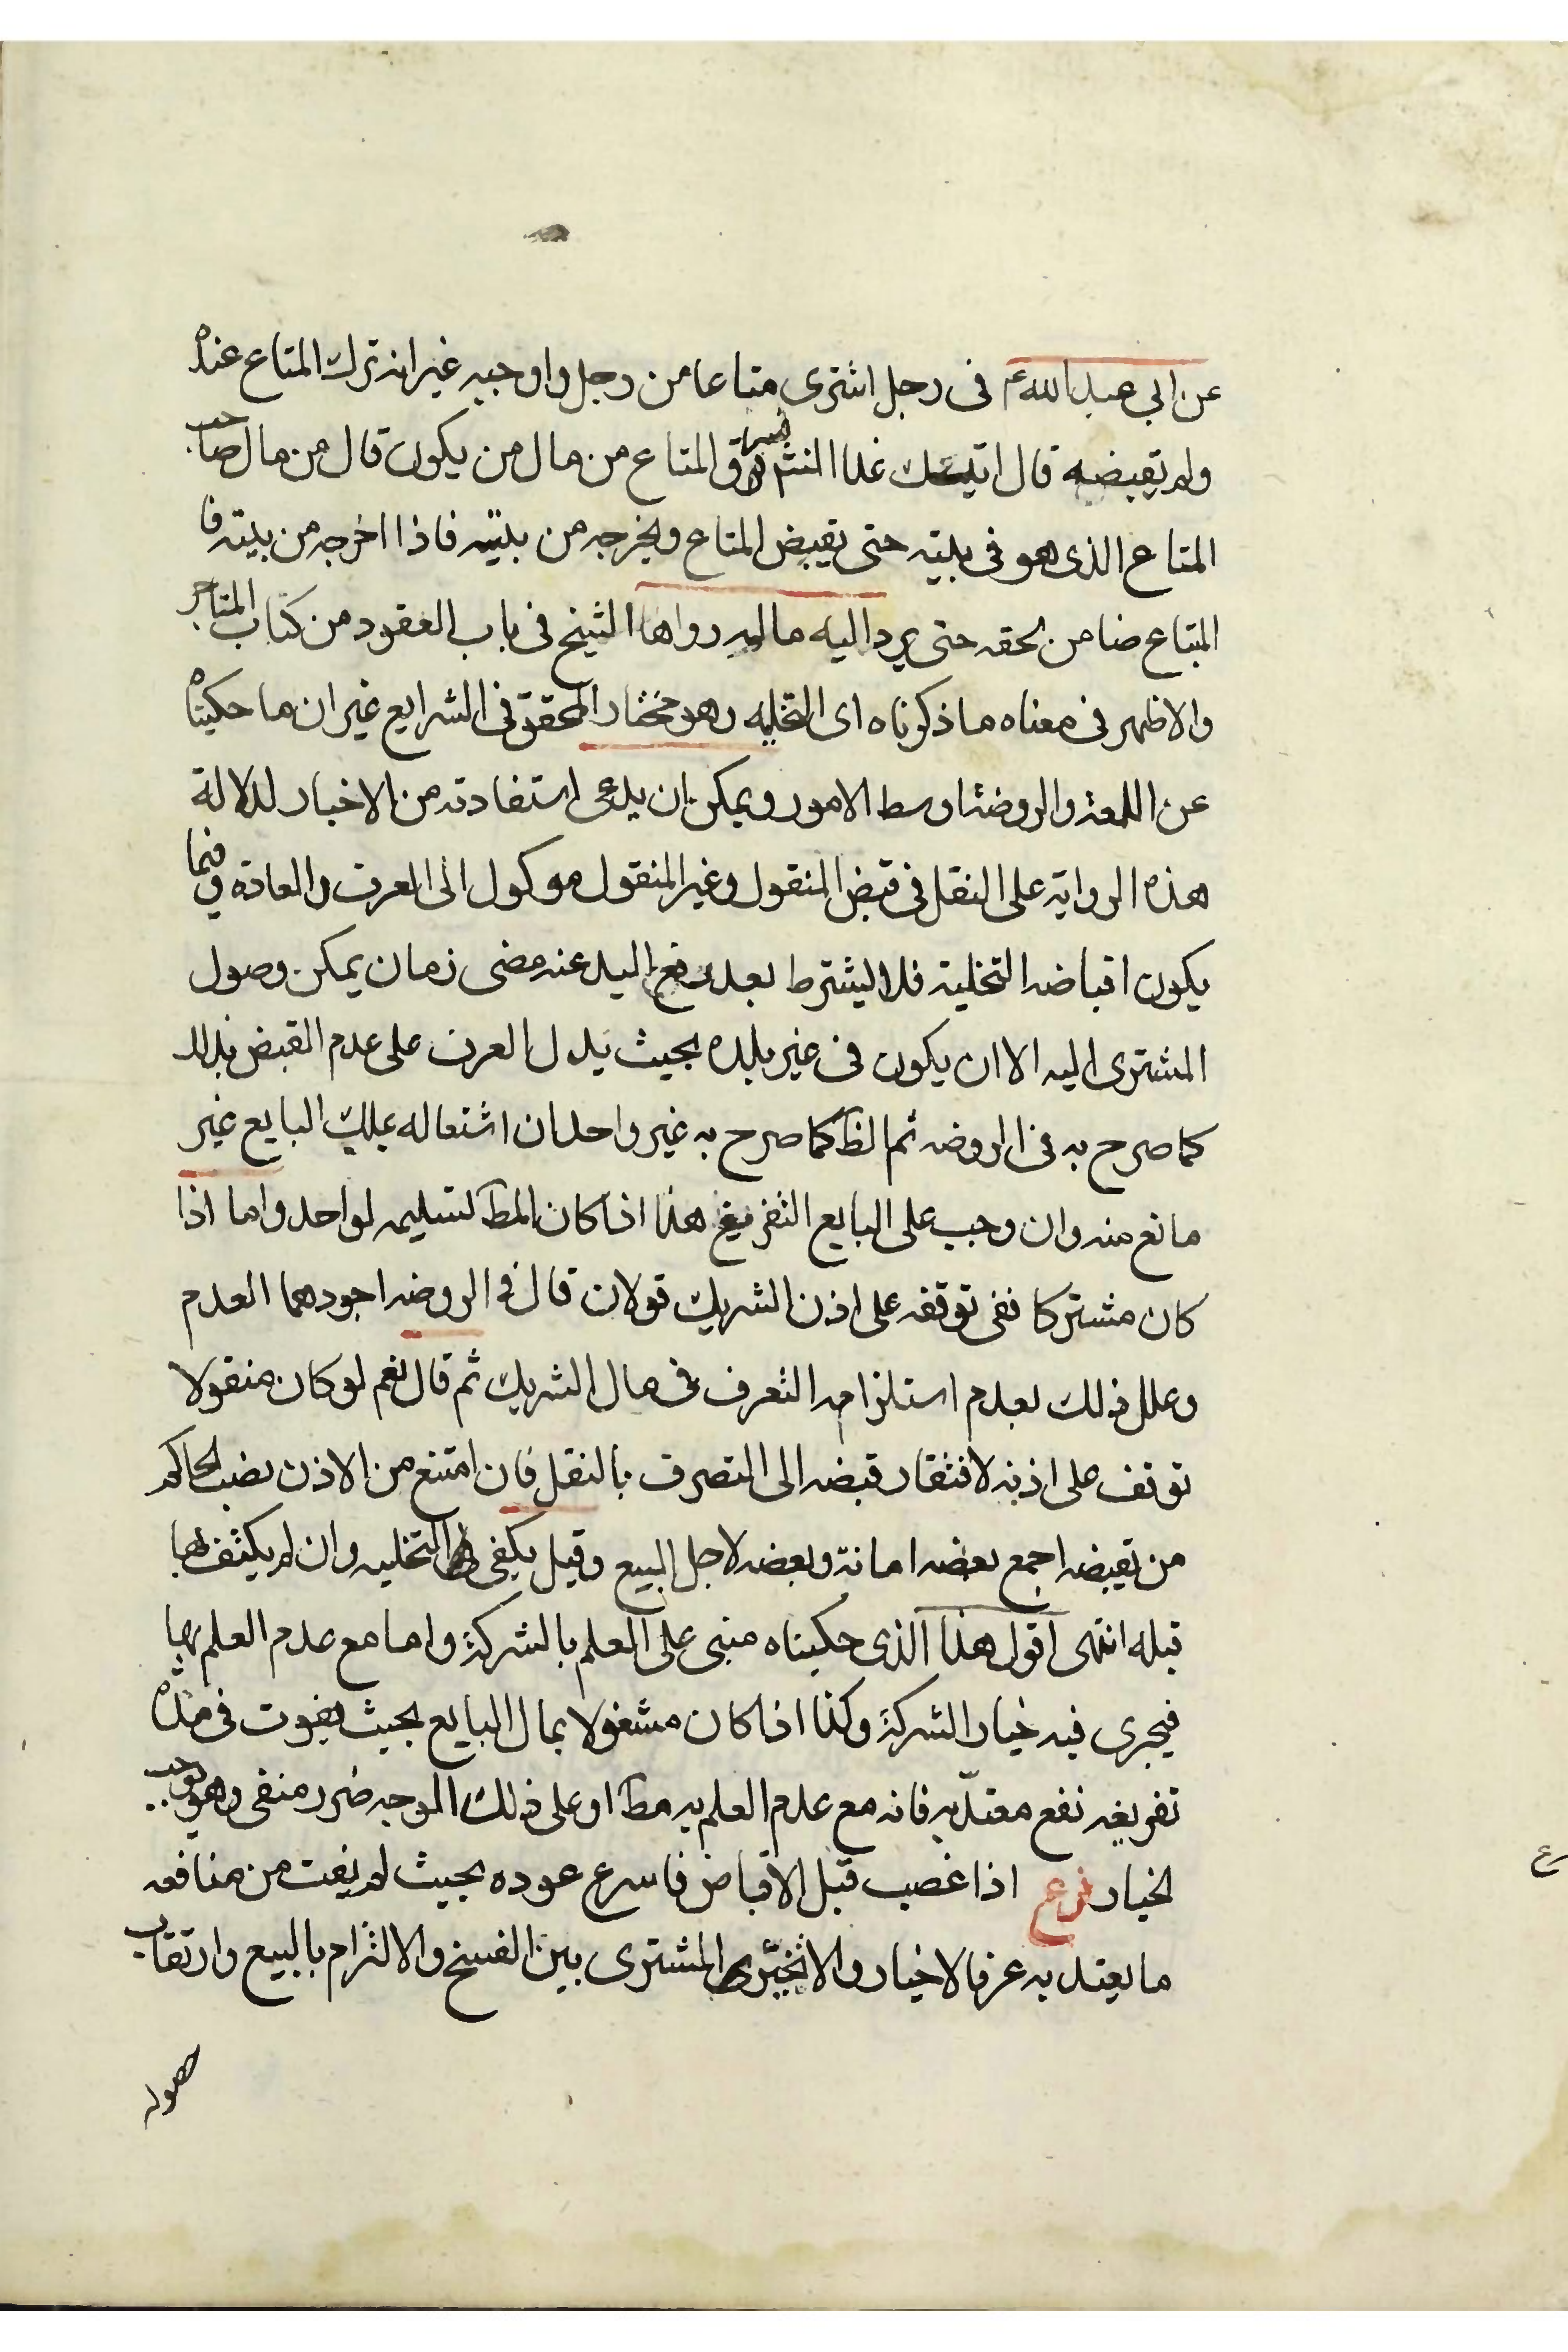 عن ابى عبد الله ع فى رجل اشترى متاعا من رجل واوجبه غير انه ترك المتاع عنده
ولم يقبضه قال اتيك غدا انشاء الله فسرق المتاع من مال من يكون قال من مال صاحب
المتاع الذى هو فى بيته حتى يقبض المتاع ويخرجه من بيته فاذا اخرجه من بيته فا
لمبتاع ضامن لحقه حتى يرد اليه ماله رواها الشيخ فى باب العقود من كتاب المتاجر
والاظهر فى معناه ما ذكرناه اى التخليه وهو مختار المحقق فى الشرايع غير ان ما حكيناه
عن اللمعة والروضة اوسط الامور ويمكن ان يدعى استفادته من الاخبار لدلالة
هذه الرواية على النقل فى قبض المنقول وغير المنقول موكول الى العرف والعادة وفيما
يكون اقباضه التخلية فلا يشترط بعد رفع اليد عنه مضى زمان يمكن وصول
المشترى اليه الا ان يكون فى غير بلده بحيث يدل العرف على عدم القبض بذلك
كما صرح به فى الروضه ثم الظ كما صرح به غير واحد ان اشتغاله بملك البايع غير
مانع منه وان وجب على البايع التفريغ هذا اذا كان المط تسليمه لواحد واما اذا
كان مشتركا ففى توقفه على اذن الشريك قولان قال فى الروضه اجودهما العدم
وعلل ذلك بعدم استلزامه التصرف فى مال الشريك ثم قال نعم لو كان منقولا
توقف على اذنه لافتقار قبضه الى التصرف بالنقل فان امتنع من الاذن نصب الحاكم
من يقبضه اجمع بعضه امانة وبعضه لاجل البيع وقيل يكفى التخليه وان لم يكتف بها
قبله انتهى اقول هذا الذى حكيناه مبنى على العلم بالشركة واما مع عدم العلم بها
فيجرى فيه خيار الشركة وكذا اذا كان مشغولا بمال البايع بحيث يفوت فى مدة
تفريغه نفع معتد به فانه مع عدم العلم به مط او على ذلك الوجه ضرر منفى وهو يوجب
لخيار فرع اذا غصب قبل الاقباض فاسرع عوده بحيث لم يفت من منافعه
ما يعتد به عرفا لا خيار والا تخير المشترى بين الفسخ والالتزام بالبيع وارتقاب
حصوله